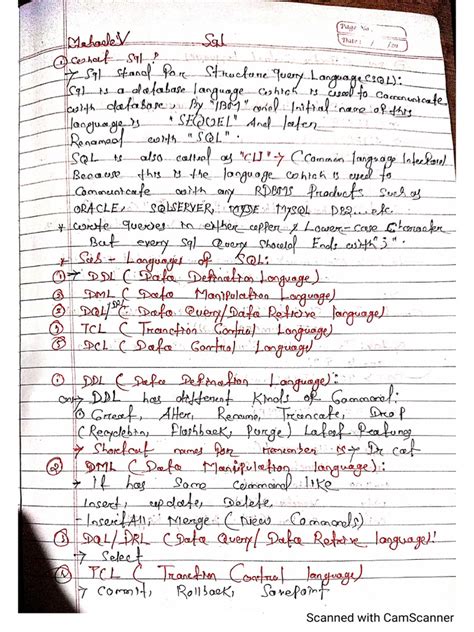 Page No.
Date / /20
Mahadev Sql
① what Sql ?
→ Sql stand for Structure query Language (SQL):
Sql is a database language which is used to Communicate
with database. By "IBM" and Initial name of this
language is "SEQUEL" And later
Renamed with "SQL".
SQL is also called as "CLI" → (Common language Interface)
Because this is the language which is used to
Communicate with any RDBMS Products Such as
ORACLE, SQLSERVER, MySQL DB2...etc.
* write queries in either upper & Lower-case Character
But every Sql Query Should Ends with ";".
* Sub-Languages of SQL:
① → DDL (Data Defination Language)
② DML (Data Manipulation Language)
③ DQL/DRL (Data Query/Data Retrive language)
④ TCL (Tranction Control Language)
⑤ DCL (Data Control Language)
① DDL (Data Defination Language):
→ DDL has different Kinds of Command:
① Creat, Alter, Rename, Trancate, Drop
(Recyclebin, Flashback, Purge) Latest Features
→ Shortcut names for remember is → Dr cat
② DML (Data Manipulation language):
→ It has Some command like
Insert, update, Delete
- InsertAll, Merge (New Commands)
③ DQL/DRL (Data Query/Data Retrive language):
→ Select
TCL (Tranction Control language)
→ Commit, Rollback, Savepoint
Scanned with CamScanner